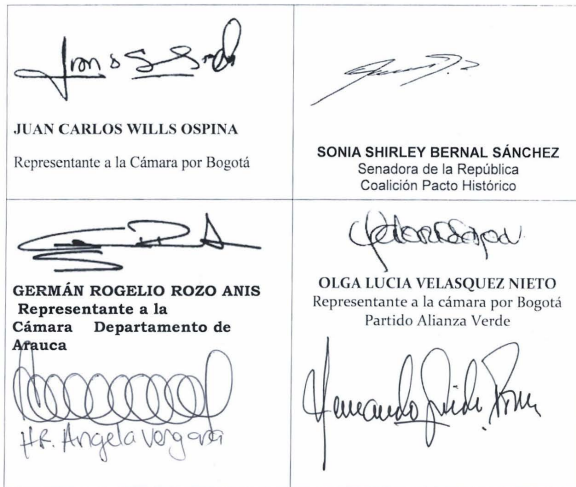 JUAN CARLOS WILLS OSPINA
Representante a la Cámara por Bogotá
SONIA SHIRLEY BERNAL SÁNCHEZ
Senadora de la República
Coalición Pacto Histórico
GERMÁN ROGELIO ROZO ANIS
Representante a la
Cámara Departamento de
Arauca
OLGA LUCIA VELASQUEZ NIETO
Representante a la cámara por Bogotá
Partido Alianza Verde
HR. Angela Vergara